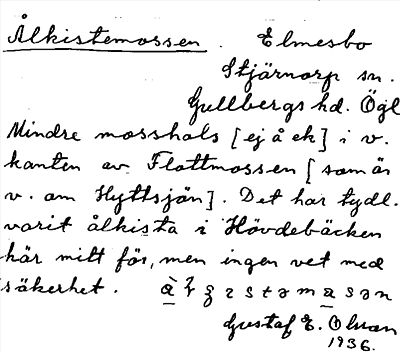 Ålkistemossen. Elmesbo
Stjärnorp sn.
Gullbergs hd. Ögl
Mindre mosshals [ej å ek] i v.
kanten av Flottmossen [som är
v. om Hyttsjön]. Det har tydl.
varit ålkista i Hövdebäcken
här mitt för, men ingen vet med
säkerhet.
Gustaf E. Olsson
1936.